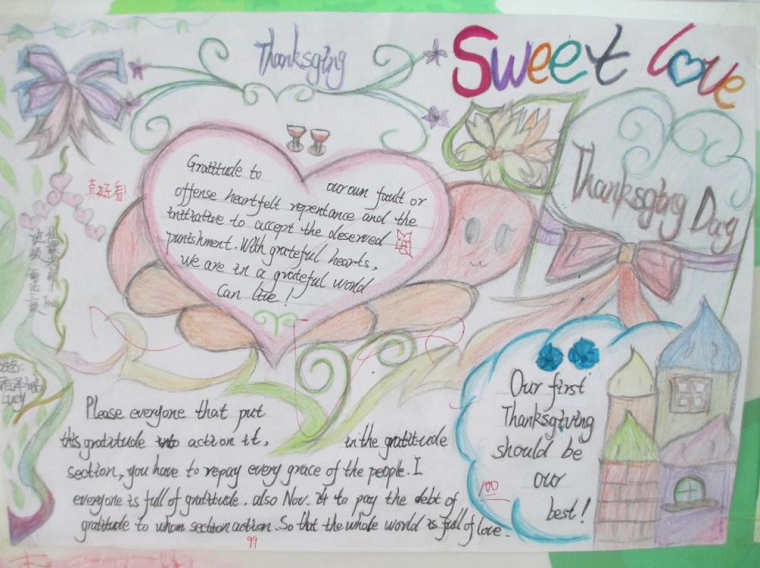 Thanksging
Sweet love
Thanksging Day
真好看!
Gratitude to our own fault or
offense heartfelt repentance and the
initiative to accept the deserved
punishment. With grateful hearts,
we are in a grateful world
Can live!
Our first
Thanksgiving
should be
our
best!
100
Please everyone that put
this gratitude into action it, in the gratitude
section, you have to repay every grace of the people. I
everyone is full of gratitude. also Nov. 24 to pay the debt of
gratitude to whom section action. So that the whole world is full of love.
99
Lucy